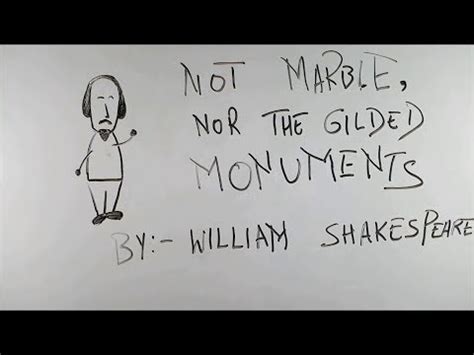 NOT MARBLE,
NOR THE GILDED
MONUMENTS
BY:- WILLIAM SHAKESPEARE